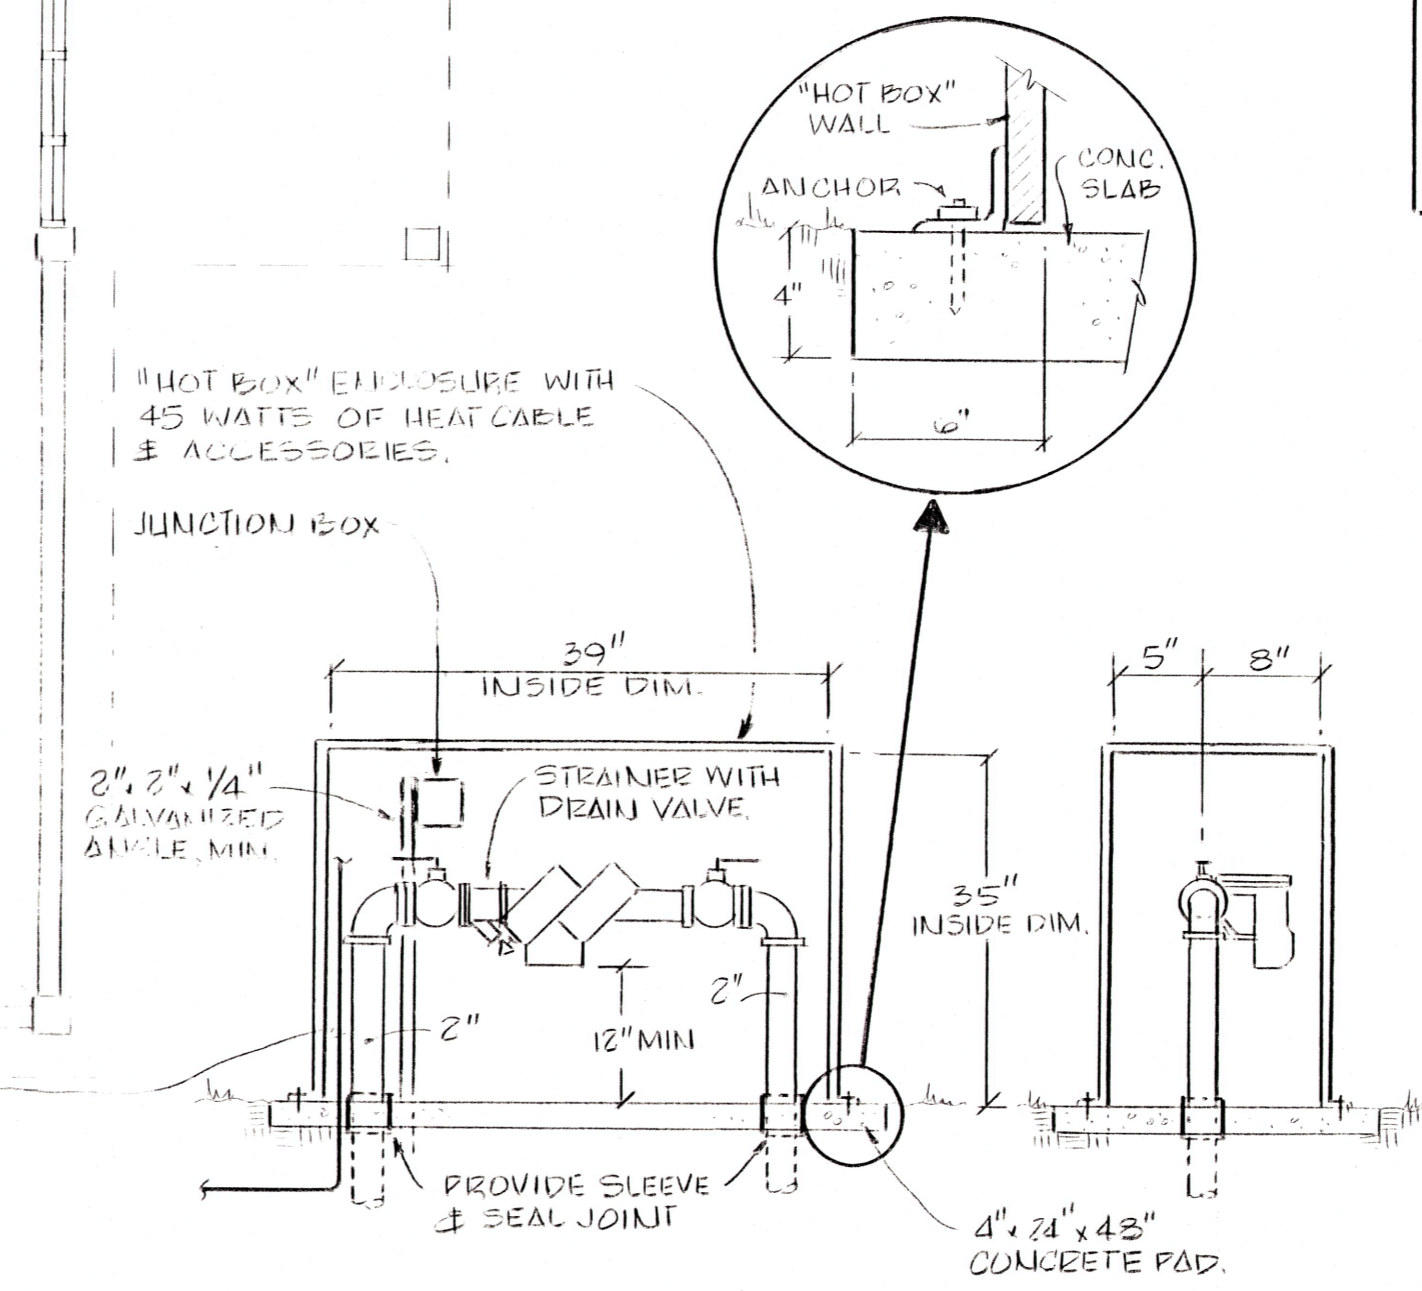 "HOT BOX"
WALL
ANCHOR
CONC.
SLAB
4"
6"
"HOT BOX" ENCLOSURE WITH
45 WATTS OF HEAT CABLE
& ACCESSORIES.
JUNCTION BOX
39"
INSIDE DIM.
5"
8"
2"x 2"x 1/4"
GALVANIZED
ANGLE, MIN.
STRAINER WITH
DRAIN VALVE.
35"
INSIDE DIM.
2"
2"
12" MIN
PROVIDE SLEEVE
& SEAL JOINT
4"x 24"x 48"
CONCRETE PAD.